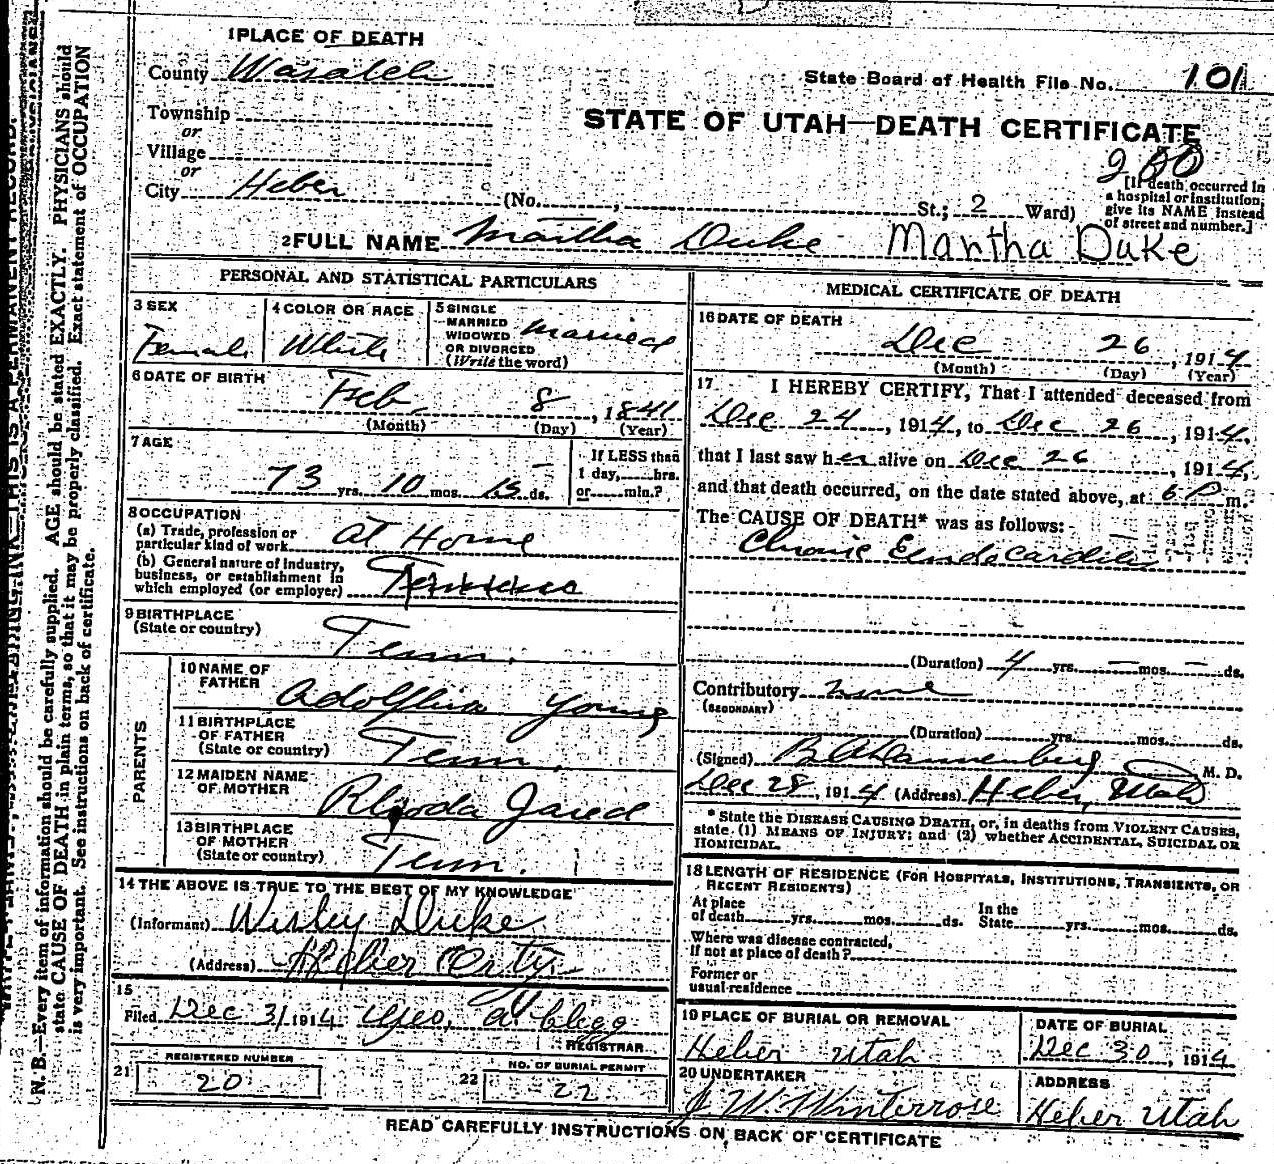 1 PLACE OF DEATH
County Wasatch
State Board of Health File No. 101
Township
or
STATE OF UTAH—DEATH CERTIFICATE
Village
or
200
City Heber (No. , St.; 2 Ward)
[If death occurred in
a hospital or institution,
give its NAME instead
of street and number.]
2 FULL NAME Martha Duke Martha Duke
PERSONAL AND STATISTICAL PARTICULARS
3 SEX
Female
4 COLOR OR RACE
White
5 SINGLE
MARRIED
WIDOWED
OR DIVORCED
(Write the word)
married
6 DATE OF BIRTH
Feb. 8, 1841
(Month) (Day) (Year)
7 AGE
73 yrs. 10 mos. 15 ds.
If LESS than
1 day, hrs.
or min.?
8 OCCUPATION
(a) Trade, profession or
particular kind of work At Home
(b) General nature of industry,
business, or establishment in
which employed (or employer)
9 BIRTHPLACE
(State or country) Tenn.
PARENTS
10 NAME OF
FATHER
Adolfia Young
11 BIRTHPLACE
OF FATHER
(State or country) Tenn.
12 MAIDEN NAME
OF MOTHER
Rhoda Jared
13 BIRTHPLACE
OF MOTHER
(State or country) Tenn.
14 THE ABOVE IS TRUE TO THE BEST OF MY KNOWLEDGE
(Informant) Wisley Duke
(Address) Heber City
15
Filed Dec 31 1914 Geo. A. Clegg
REGISTRAR
REGISTERED NUMBER
21 20
NO. OF BURIAL PERMIT
22 22
MEDICAL CERTIFICATE OF DEATH
16 DATE OF DEATH
Dec 26, 1914
(Month) (Day) (Year)
17 I HEREBY CERTIFY, That I attended deceased from
Dec 24, 1914, to Dec 26, 1914,
that I last saw her alive on Dec 26, 1914,
and that death occurred, on the date stated above, at 6 P m.
The CAUSE OF DEATH* was as follows:
Chronic Endocarditis
(Duration) 4 yrs. — mos. — ds.
Contributory none
(SECONDARY)
(Duration) yrs. mos. ds.
(Signed) Dannenberg M. D.
Dec 28, 1914 (Address) Heber, Utah
* State the DISEASE CAUSING DEATH, or, in deaths from VIOLENT CAUSES,
state (1) MEANS OF INJURY; and (2) whether ACCIDENTAL, SUICIDAL OR
HOMICIDAL.
18 LENGTH OF RESIDENCE (FOR HOSPITALS, INSTITUTIONS, TRANSIENTS, OR
RECENT RESIDENTS)
At place
of death yrs. mos. ds.
In the
State yrs. mos. ds.
Where was disease contracted,
If not at place of death?
Former or
usual residence
19 PLACE OF BURIAL OR REMOVAL
Heber Utah
DATE OF BURIAL
Dec 30, 1914
20 UNDERTAKER
J W Winterrose
ADDRESS
Heber Utah
READ CAREFULLY INSTRUCTIONS ON BACK OF CERTIFICATE
N. B.—Every item of information should be carefully supplied. AGE should be stated EXACTLY. PHYSICIANS should
state CAUSE OF DEATH in plain terms, so that it may be properly classified. Exact statement of OCCUPATION
is very important. See instructions on back of certificate.
THIS IS A PERMANENT RECORD.